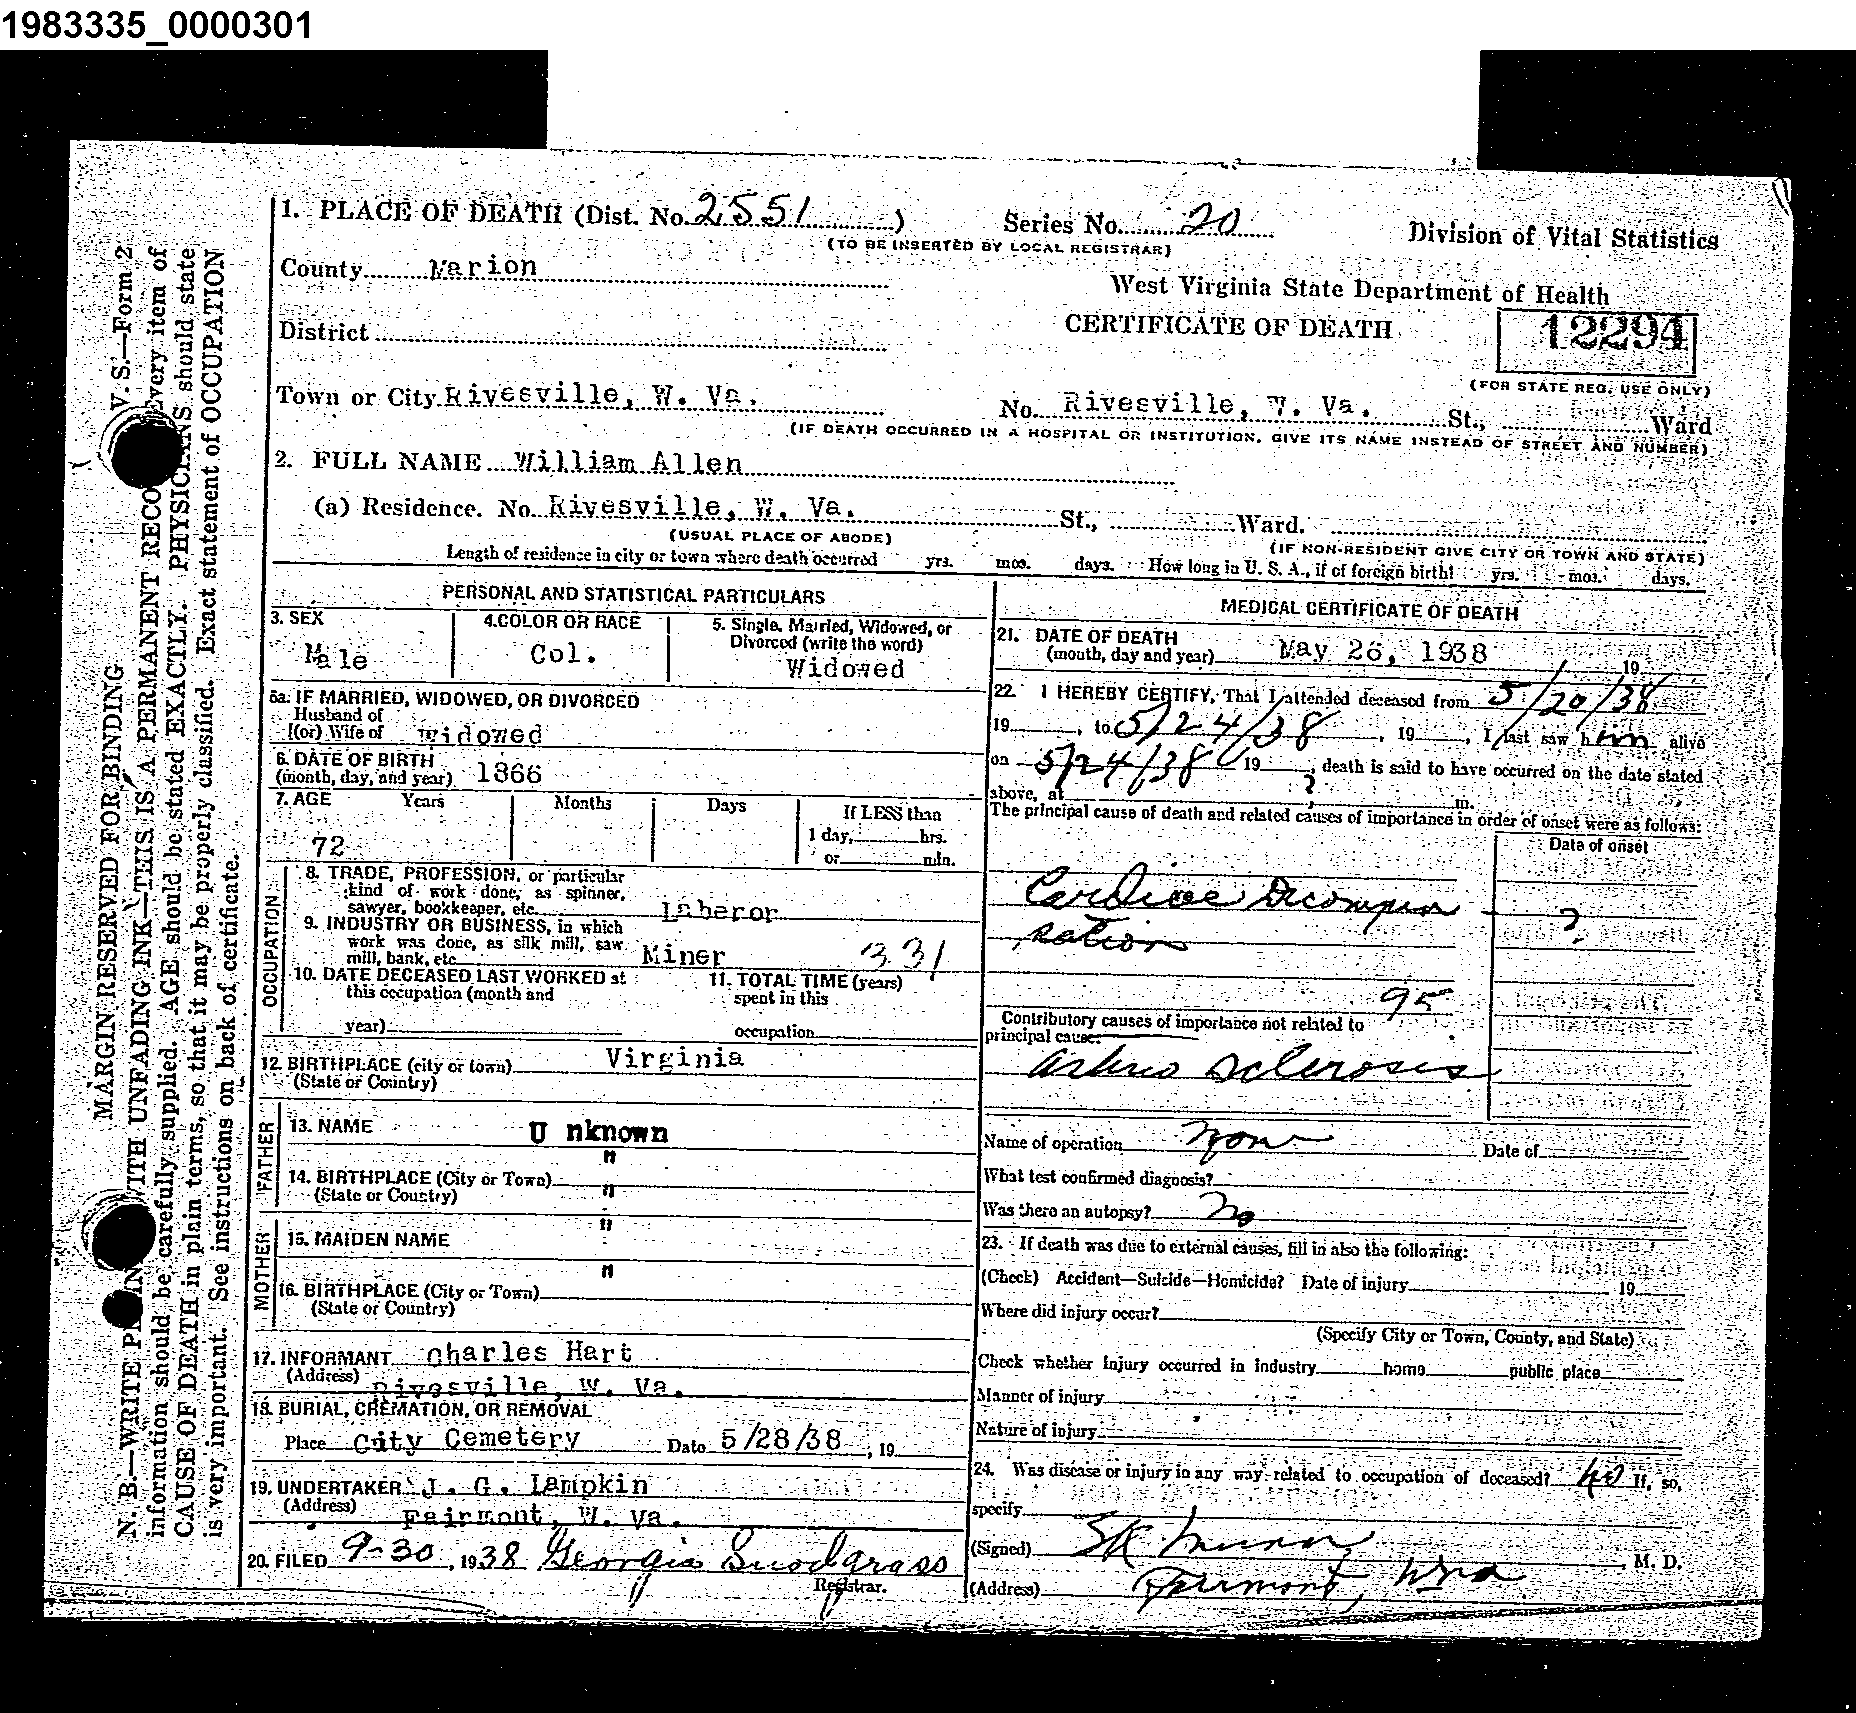 1983335_0000301
1. PLACE OF DEATH (Dist. No. 2551)
Series No. 20
(TO BE INSERTED BY LOCAL REGISTRAR)
Division of Vital Statistics
County Marion
West Virginia State Department of Health
District
CERTIFICATE OF DEATH
12294
(FOR STATE REG. USE ONLY)
Town or City Rivesville, W. Va.
No. Rivesville, W. Va. St., Ward
(IF DEATH OCCURRED IN A HOSPITAL OR INSTITUTION, GIVE ITS NAME INSTEAD OF STREET AND NUMBER)
2. FULL NAME William Allen
(a) Residence. No. Rivesville, W. Va. St., Ward.
(USUAL PLACE OF ABODE)
(IF NON-RESIDENT GIVE CITY OR TOWN AND STATE)
Length of residence in city or town where death occurred yrs. mos. days. How long in U. S. A., if of foreign birth! yrs. mos. days.
PERSONAL AND STATISTICAL PARTICULARS
3. SEX
Male
4. COLOR OR RACE
Col.
5. Single, Married, Widowed, or
Divorced (write the word)
Widowed
5a. IF MARRIED, WIDOWED, OR DIVORCED
Husband of
(or) Wife of widowed
6. DATE OF BIRTH
(month, day, and year) 1866
7. AGE Years Months Days If LESS than
1 day, hrs.
or min.
72
OCCUPATION
8. TRADE, PROFESSION, or particular
kind of work done, as spinner,
sawyer, bookkeeper, etc. Laberor
9. INDUSTRY OR BUSINESS, in which
work was done, as silk mill, saw
mill, bank, etc. Miner 331
10. DATE DECEASED LAST WORKED at
this occupation (month and
year)
11. TOTAL TIME (years)
spent in this
occupation
12. BIRTHPLACE (city or town) Virginia
(State or Country)
FATHER
13. NAME U nknown
"
14. BIRTHPLACE (City or Town) "
(State or Country)
MOTHER
"
15. MAIDEN NAME
"
16. BIRTHPLACE (City or Town)
(State or Country)
17. INFORMANT Charles Hart
(Address) Rivesville, W. Va.
18. BURIAL, CREMATION, OR REMOVAL
Place City Cemetery Date 5/28/38, 19
19. UNDERTAKER J. G. Lampkin
(Address) Fairmont, W. Va.
20. FILED 9-30, 1938 Georgia Snodgrass
Registrar.
MEDICAL CERTIFICATE OF DEATH
21. DATE OF DEATH
(month, day and year) May 26, 1938 19
22. I HEREBY CERTIFY, That I attended deceased from 5/20/38
19, to 5/24/38, 19, I last saw him alive
on 5/24/38 19, death is said to have occurred on the date stated
above, at ? m.
The principal cause of death and related causes of importance in order of onset were as follows:
Date of onset
Cardiac Decompen
sation ?
95
Contributory causes of importance not related to
principal cause:
Arterio sclerosis
Name of operation None Date of
What test confirmed diagnosis?
Was there an autopsy? No
23. If death was due to external causes, fill in also the following:
(Check) Accident—Suicide—Homicide? Date of injury 19
Where did injury occur?
(Specify City or Town, County, and State)
Check whether injury occurred in industry home public place
Manner of injury
Nature of injury
24. Was disease or injury in any way related to occupation of deceased? No If, so,
specify
(Signed) M. D.
(Address) Fairmont, WVa
V. S.—Form 2
MARGIN RESERVED FOR BINDING
N. B.—WRITE PLAIN WITH UNFADING INK—THIS IS A PERMANENT RECO Every item of
information should be carefully supplied. AGE should be stated EXACTLY. PHYSICIANS should state
CAUSE OF DEATH in plain terms, so that it may be properly classified. Exact statement of OCCUPATION
is very important. See instructions on back of certificate.